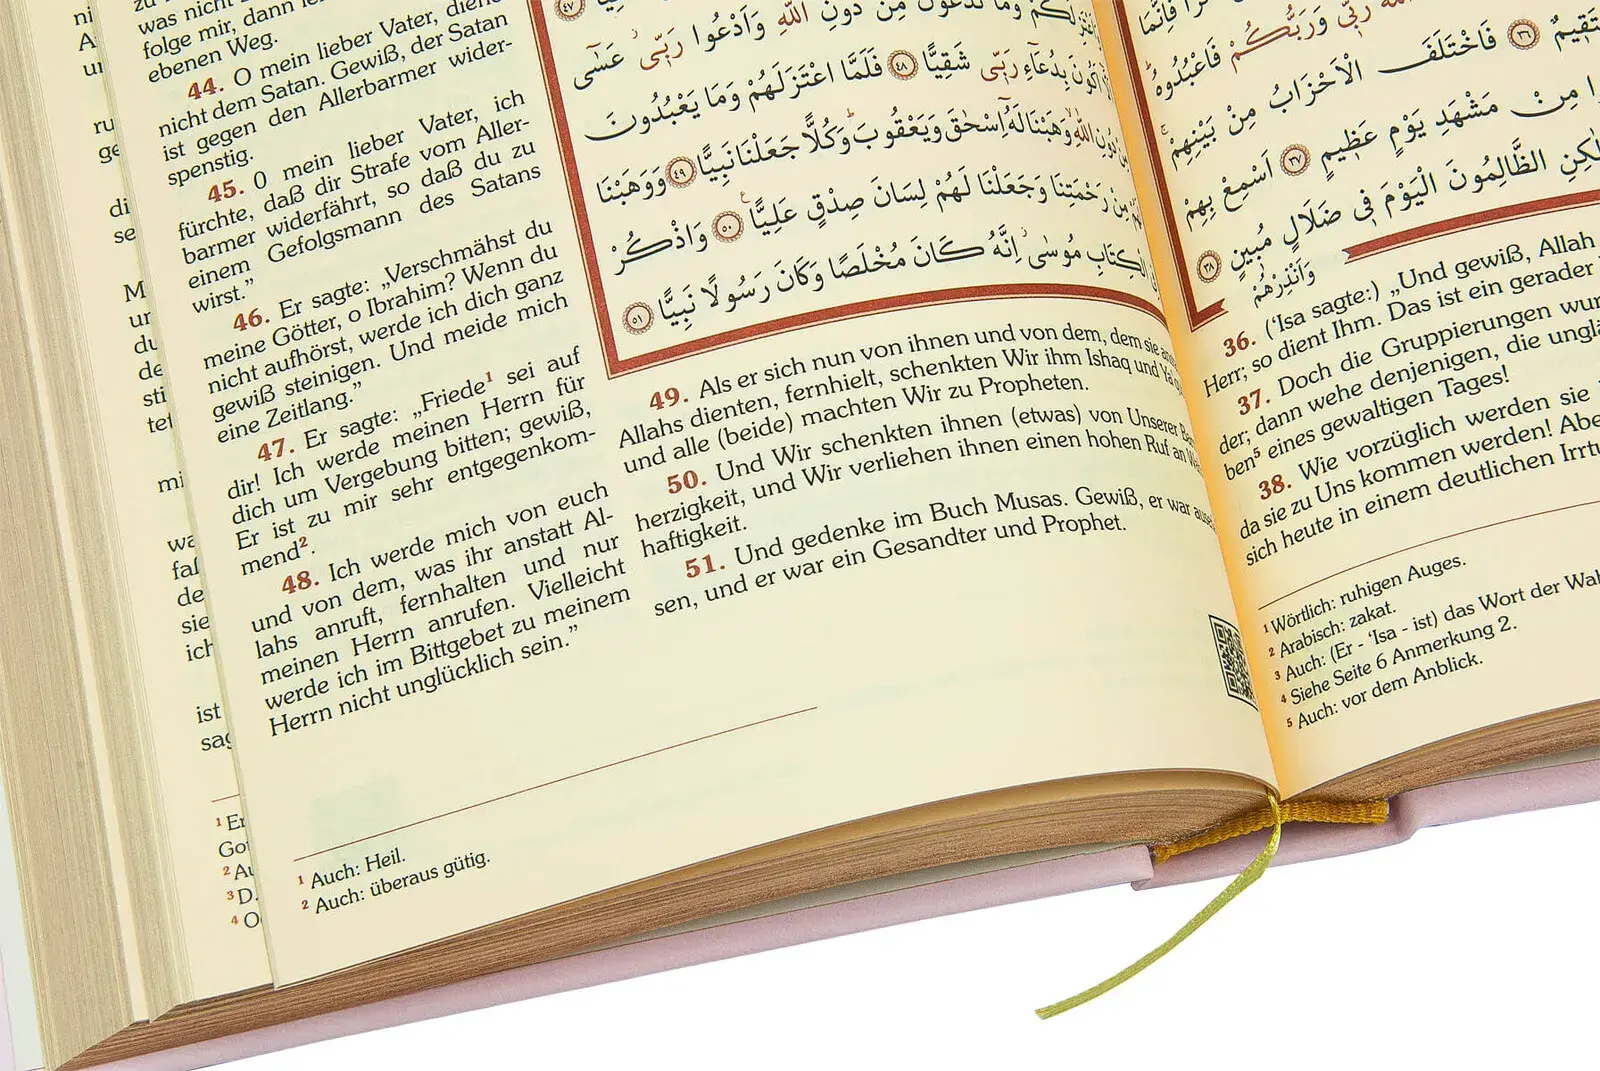 was nicht
folge mir, dann
ebenen Weg.
44. O mein lieber Vater, diene
nicht dem Satan. Gewiß, der Satan
ist gegen den Allerbarmer wider-
spenstig.
45. O mein lieber Vater, ich
fürchte, daß dir Strafe vom Aller-
barmer widerfährt, so daß du zu
einem Gefolgsmann des Satans
wirst.”
46. Er sagte: „Verschmähst du
meine Götter, o Ibrahim? Wenn du
nicht aufhörst, werde ich dich ganz
gewiß steinigen. Und meide mich
eine Zeitlang.”
47. Er sagte: „Friede¹ sei auf
dir! Ich werde meinen Herrn für
dich um Vergebung bitten; gewiß,
Er ist zu mir sehr entgegenkom-
mend².
48. Ich werde mich von euch
und von dem, was ihr anstatt Al-
lahs anruft, fernhalten und nur
meinen Herrn anrufen. Vielleicht
werde ich im Bittgebet zu meinem
Herrn nicht unglücklich sein.”
٤٧
وَمَا تَدْعُونَ مِنْ دُونِ اللّٰهِ وَاَدْعُوا رَبّ۪ى عَسٰٓى
اَكُونَ بِدُعَٓاءِ رَبّ۪ى شَقِيًّا ٤٨ فَلَمَّا اعْتَزَلَهُمْ وَمَا يَعْبُدُونَ
مِنْ دُونِ اللّٰهِ وَهَبْنَا لَهُٓ اِسْحٰقَ وَيَعْقُوبَ وَكُلًّا جَعَلْنَا نَبِيًّا ٤٩ وَوَهَبْنَا
مِنْ رَحْمَتِنَا وَجَعَلْنَا لَهُمْ لِسَانَ صِدْقٍ عَلِيًّا ٥٠ وَاذْكُرْ
الْكِتَابِ مُوسٰى اِنَّهُ كَانَ مُخْلَصًا وَكَانَ رَسُولًا نَبِيًّا ٥١
49. Als er sich nun von ihnen und von dem, dem sie
Allahs dienten, fernhielt, schenkten Wir ihm Ishaq und
und alle (beide) machten Wir zu Propheten.
50. Und Wir schenkten ihnen (etwas) von Unserer
herzigkeit, und Wir verliehen ihnen einen hohen Ruf an
haftigkeit.
51. Und gedenke im Buch Musas. Gewiß, er war
sen, und er war ein Gesandter und Prophet.
¹ Auch: Heil.
² Auch: überaus gütig.
رَبّ۪ى وَرَبُّكُمْ فَاعْبُدُوهُ
٣٦ فَاخْتَلَفَ الْاَحْزَابُ مِنْ بَيْنِهِمْ
مِنْ مَشْهَدِ يَوْمٍ عَظ۪يمٍ ٣٧ اَسْمِعْ بِهِمْ
الظَّالِمُونَ الْيَوْمَ ف۪ى ضَلَالٍ مُب۪ينٍ ٣٨
وَاَنْذِرْهُمْ
36. (‘Isa sagte:) „Und gewiß, Allah
Herr; so dient Ihm. Das ist ein gerader
37. Doch die Gruppierungen
der; dann wehe denjenigen, die
ben⁵ eines gewaltigen Tages!
38. Wie vorzüglich werden sie
da sie zu Uns kommen werden!
sich heute in einem deutlichen
¹ Wörtlich: ruhigen Auges.
² Arabisch: zakat.
³ Auch: (Er - ‘Isa - ist) das Wort der
⁴ Siehe Seite 6 Anmerkung 2.
⁵ Auch: vor dem Anblick.